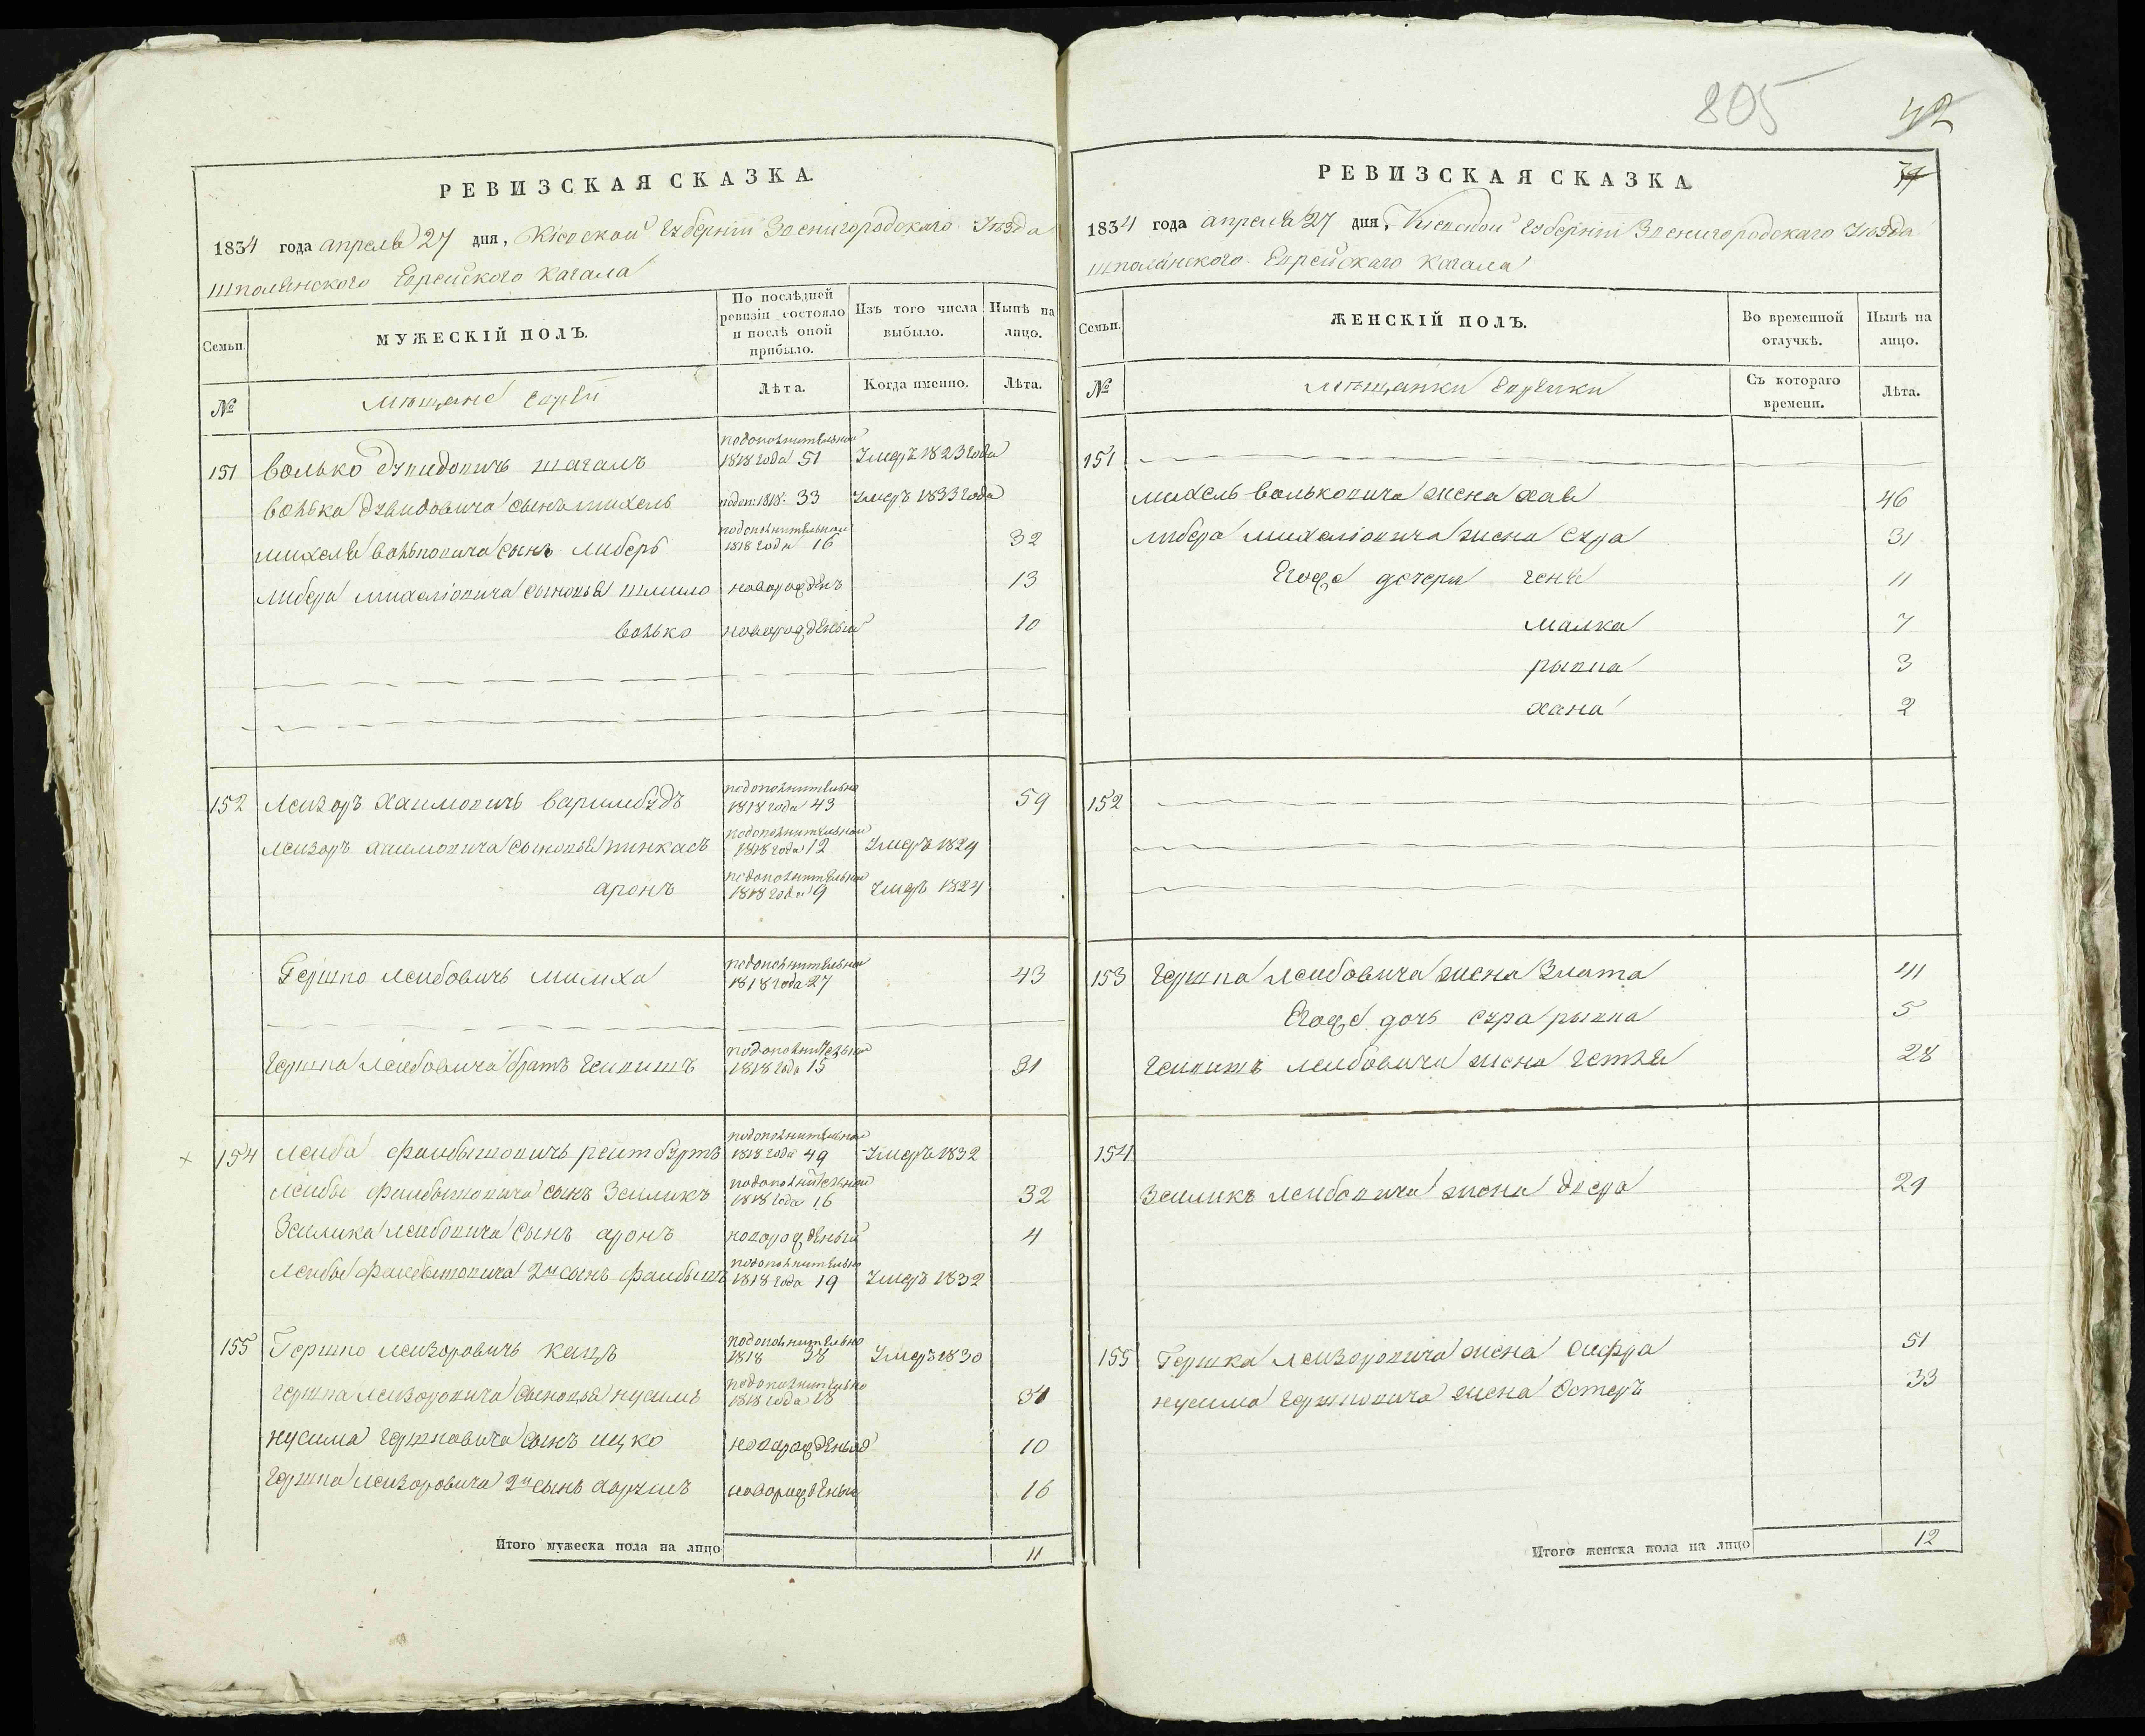 805
42
РЕВИЗСКАЯ СКАЗКА.
1834 года апреля 27 дня, Кіевской Губерніи Звенигородского Уѣзда
шполянского Еврейского Кагала
Семьи.
МУЖЕСКІЙ ПОЛЪ.
По послѣдней ревизіи состояло и послѣ оной прибыло.
Изъ того числа выбыло.
Нынѣ на лицо.
№
Мѣщане Евреи
Лѣта.
Когда именно.
Лѣта.
151 Волько Дувидовичъ шагалъ подополнительной 1818 года 51 Умеръ 1823 года
Волька Дувидовича сынъ михель подоп: 1818: 33 Умеръ 1833 года
михеля вольковича сынъ либеръ подополнительной 1818 года 16 32
либера михеліовича сыновья шлиомо новорожденъ 13
волько новорожденый 10
152 Лейзоръ Хаимовичъ варимбудъ подополнительно 1818 года 43 59
лейзоръ хаимовича сыновья пинкасъ подополнительной 1818 года 12 Умеръ 1829
аронъ подополнительной 1818 года 9 Умеръ 1824
Гершко Лейбовичъ милиха подополнительной 1818 года 27 43
гершка Лейбовича братъ гейвишъ подополнительной 1818 года 15 31
154 Лейба файбышовичъ рейтбуртъ подополнительной 1818 года 49 Умеръ 1832
лейбы файбышовича сынъ Зейликъ подополнительной 1818 года 16 32
Зейлика лейбовича сынъ аронъ новорожденый 4
лейбы файбышовича 2й сынъ файбишъ подополнительно 1818 года 19 Умеръ 1832
155 Гершко лейзоровичъ кацъ подополнительно 1818 38 Умеръ 1830
гершка лейзоровича сыновья нусимъ подополнительно 1818 года 18 34
нусима гершковича сынъ ицко новорожденый 10
гершка лейзоровича 2й сынъ новорожденый 16
Итого мужеска пола на лицо 11
РЕВИЗСКАЯ СКАЗКА.
1834 года апреля 27 дня, Кіевской Губерніи Звенигородскаго Уѣзда
шполянского Еврейскаго Кагала
Семьи.
ЖЕНСКІЙ ПОЛЪ.
Во временной отлучкѣ.
Нынѣ на лицо.
№
мѣщанки Еврейки
Съ котораго времени.
Лѣта.
151
михель вольковича жена хая 46
либера михеліовича жена сура 31
Егоже дочери геня 11
малка 7
рывка 3
хана 2
152
153 гершка лейбовича жена Злата 41
Егоже дочь сура рывка 5
гейвишъ лейбовича жена гетля 28
154
Зейликъ лейбовича жена двера 29
155 Гершка лейзоровича жена сифра 51
нусима гершковича жена Эстеръ 33
Итого женска пола на лицо 12